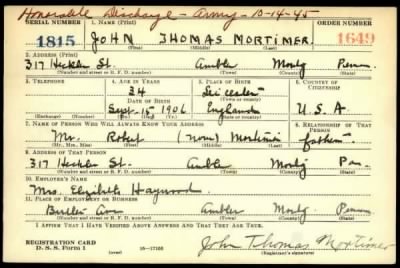 Honorable Discharge - Army - 10-14-45
SERIAL NUMBER 1. NAME (Print) ORDER NUMBER
1815 JOHN THOMAS MORTIMER. 1649
(First) (Middle) (Last)
2. ADDRESS (Print)
317 Heckler St. Ambler Montg Penn.
(Number and street or R. F. D. number) (Town) (County) (State)
3. TELEPHONE 4. AGE IN YEARS 5. PLACE OF BIRTH 6. COUNTRY OF CITIZENSHIP
34
DATE OF BIRTH (Town or county)
Sept. 15 1906 England U.S.A
(Exchange) (Number) (Mo.) (Day) (Yr.) (State or country)
7. NAME OF PERSON WHO WILL ALWAYS KNOW YOUR ADDRESS 8. RELATIONSHIP OF THAT PERSON
Mr. Robert (none) Mortimer father
(Mr., Mrs., Miss) (First) (Middle) (Last)
9. ADDRESS OF THAT PERSON
317 Heckler St. Ambler Montg Pa.
(Number and street or R. F. D. number) (Town) (County) (State)
10. EMPLOYER'S NAME
Mrs. Elizabeth Haywood
11. PLACE OF EMPLOYMENT OR BUSINESS
Butler Ave Ambler Montg. Penna
(Number and street or R. F. D. number) (Town) (County) (State)
I AFFIRM THAT I HAVE VERIFIED ABOVE ANSWERS AND THAT THEY ARE TRUE.
REGISTRATION CARD
D. S. S. Form 1 (over) 16-17105 John Thomas Mortimer
(Registrant's signature)